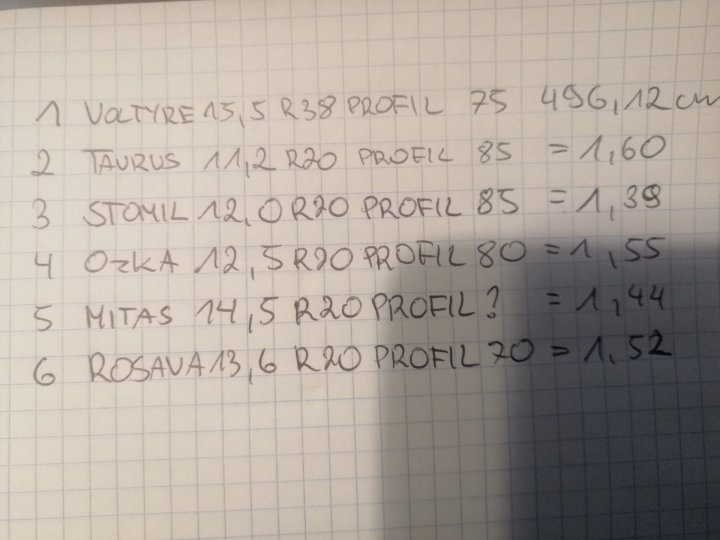 1 VOLTYRE 15,5 R38 PROFIL 75 496,12 cm
2 TAURUS 11,2 R20 PROFIL 85 = 1,60
3 STOMIL 12,0 R20 PROFIL 85 = 1,39
4 OzKA 12,5 R20 PROFIL 80 = 1,55
5 MITAS 14,5 R20 PROFIL? = 1,44
6 ROSAVA 13,6 R20 PROFIL 70 = 1,52